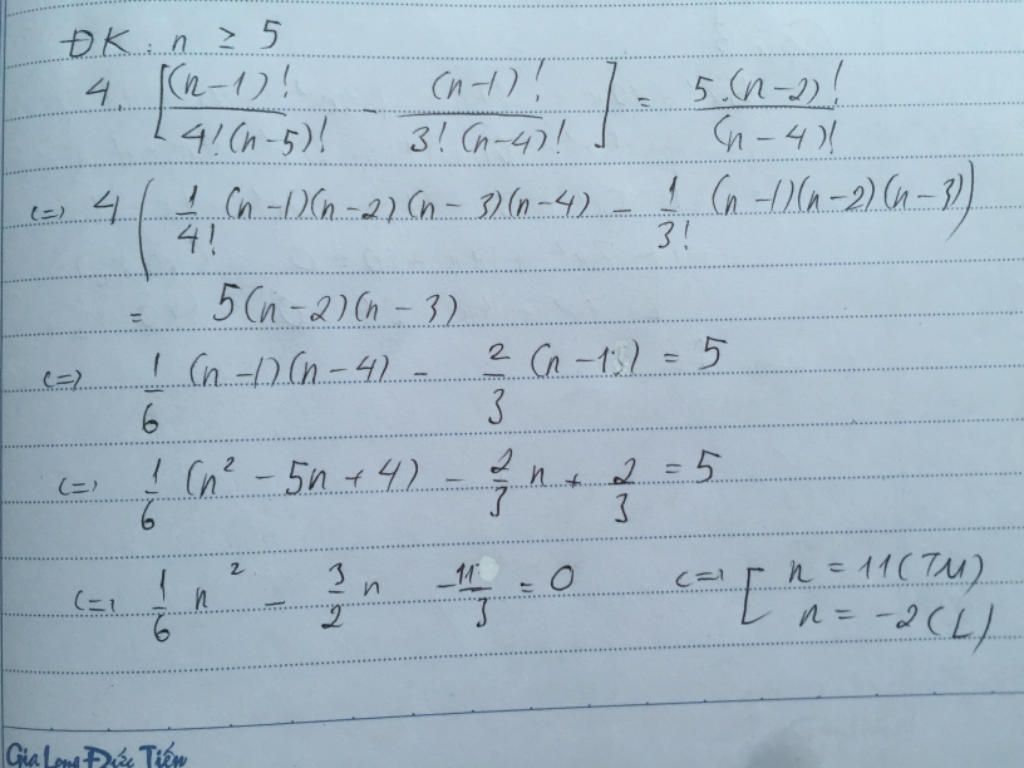 ĐK: n ≥ 5
4. [(n-1)! / 4!(n-5)! - (n-1)! / 3!(n-4)!] = 5.(n-2)! / (n-4)!
(=) 4 (1/4! (n-1)(n-2)(n-3)(n-4) - 1/3! (n-1)(n-2)(n-3))
= 5(n-2)(n-3)
(=) 1/6 (n-1)(n-4) - 2/3 (n-1) = 5
(=) 1/6 (n² - 5n + 4) - 2/3 n + 2/3 = 5
(=) 1/6 n² - 3/2 n - 11/3 = 0 (=) [ n = 11 (TM)
n = -2 (L)
Gia Long Đức Tiến